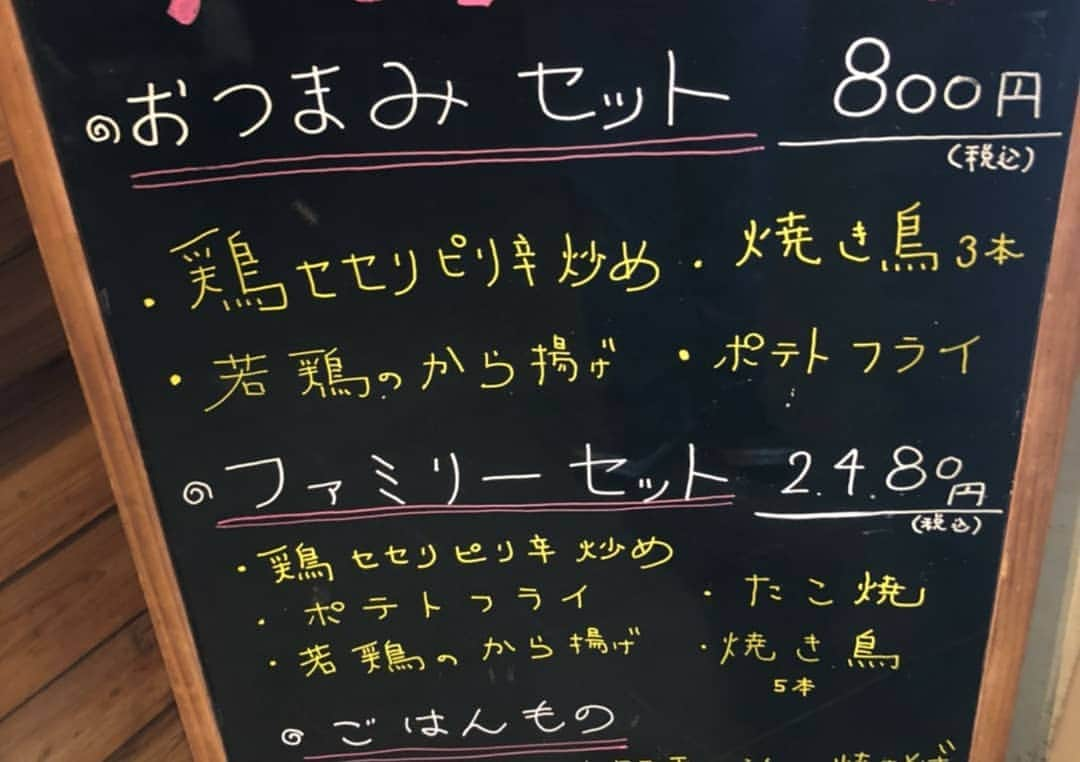 おつまみ セット 800円
(税込)
・鶏セセリピリ辛炒め ・焼き鳥 3本
・若鶏のから揚げ ・ポテトフライ
ファミリーセット 2.4.80円
(税込)
・鶏セセリピリ辛炒め
・ポテトフライ ・たこ焼
・若鶏のから揚げ ・焼き鳥
5本
ごはんもの